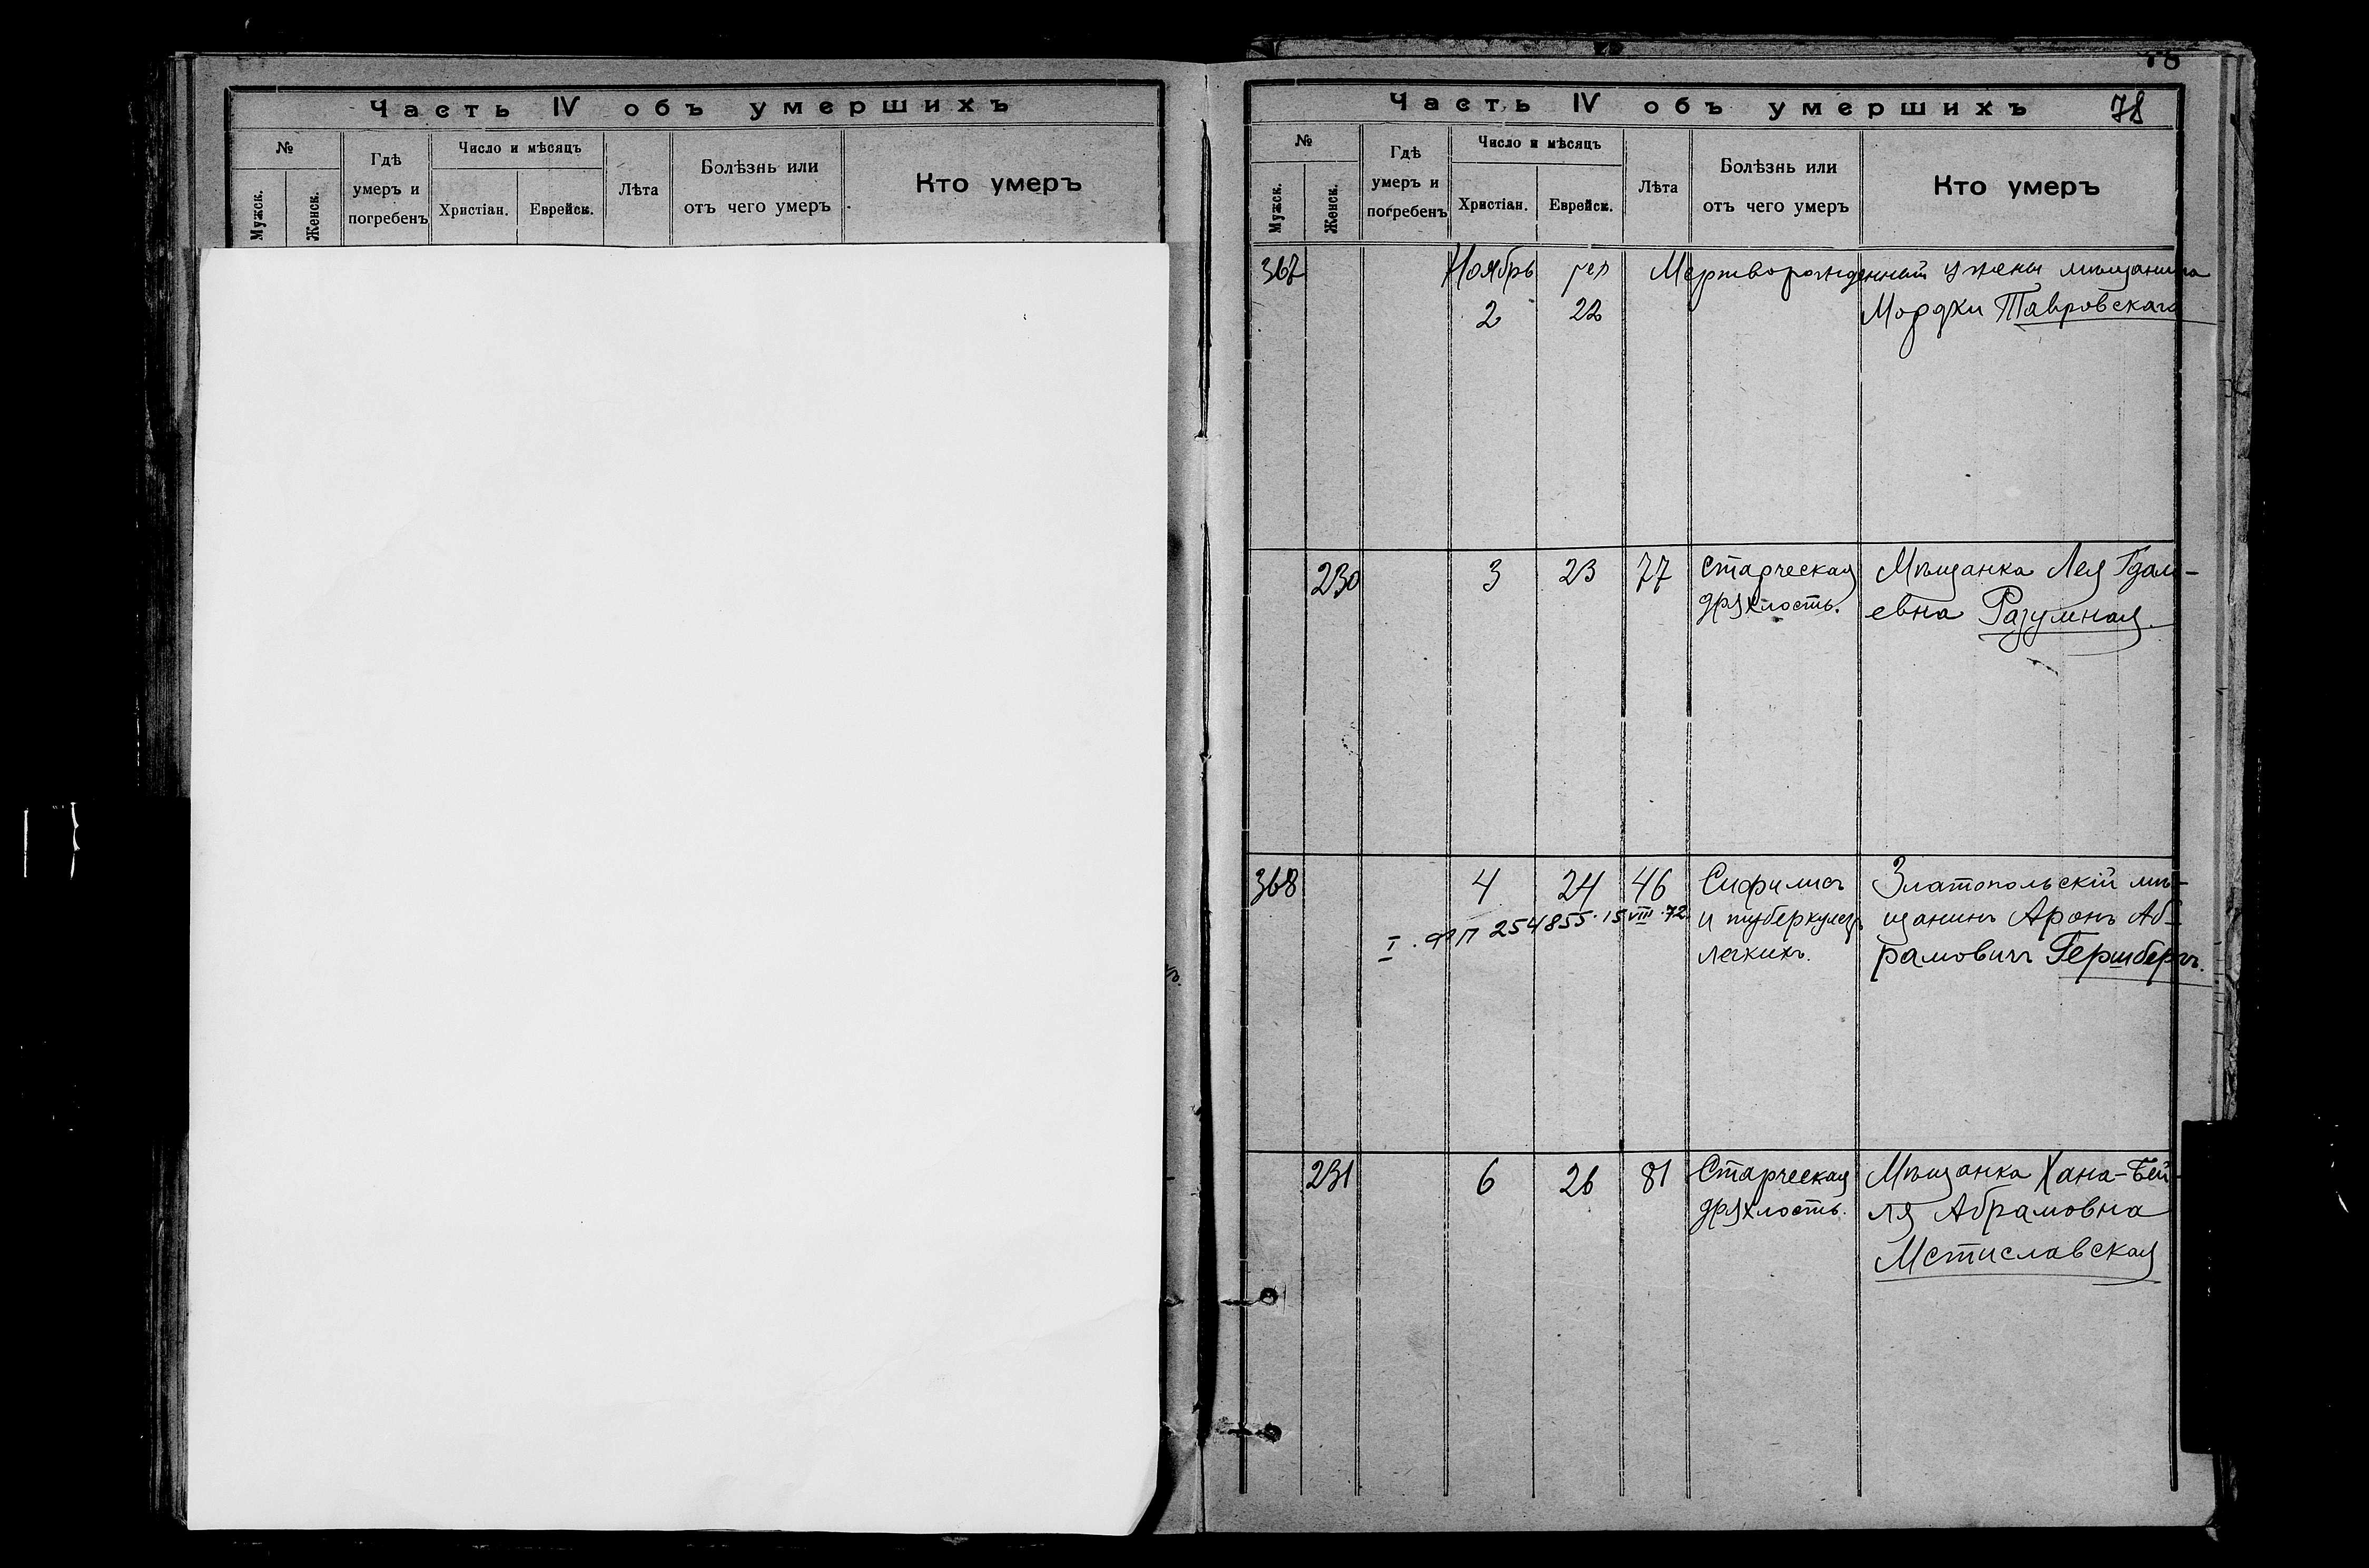 Часть IV объ умершихъ
№
Мужск.
Женск.
Гдѣ
умеръ и
погребенъ
Число и мѣсяцъ
Христіан.
Еврейск.
Лѣта
Болѣзнь или
отъ чего умеръ
Кто умеръ
78
Часть IV объ умершихъ
78
№
Мужск.
Женск.
Гдѣ
умеръ и
погребенъ
Число и мѣсяцъ
Христіан.
Еврейск.
Лѣта
Болѣзнь или
отъ чего умеръ
Кто умеръ
367 Ноябрь Мертворожденный у жены мѣщанина
2 22 Мордки Тавровскаго
230 3 23 77 Старческая Мѣщанка Лея Гдал-
дряхлость. евна Разумная.
368 4 24 46 Сифилисъ Златопольскій мѣ-
I. ФП 254855. 15 VIII 72 и туберкулезъ щанинъ Аронъ Аб-
легкихъ. рамовичъ Гершбергъ.
231 6 26 81 Старческая Мѣщанка Хана-Бей-
дряхлость. ля Абрамовна
Мстиславская